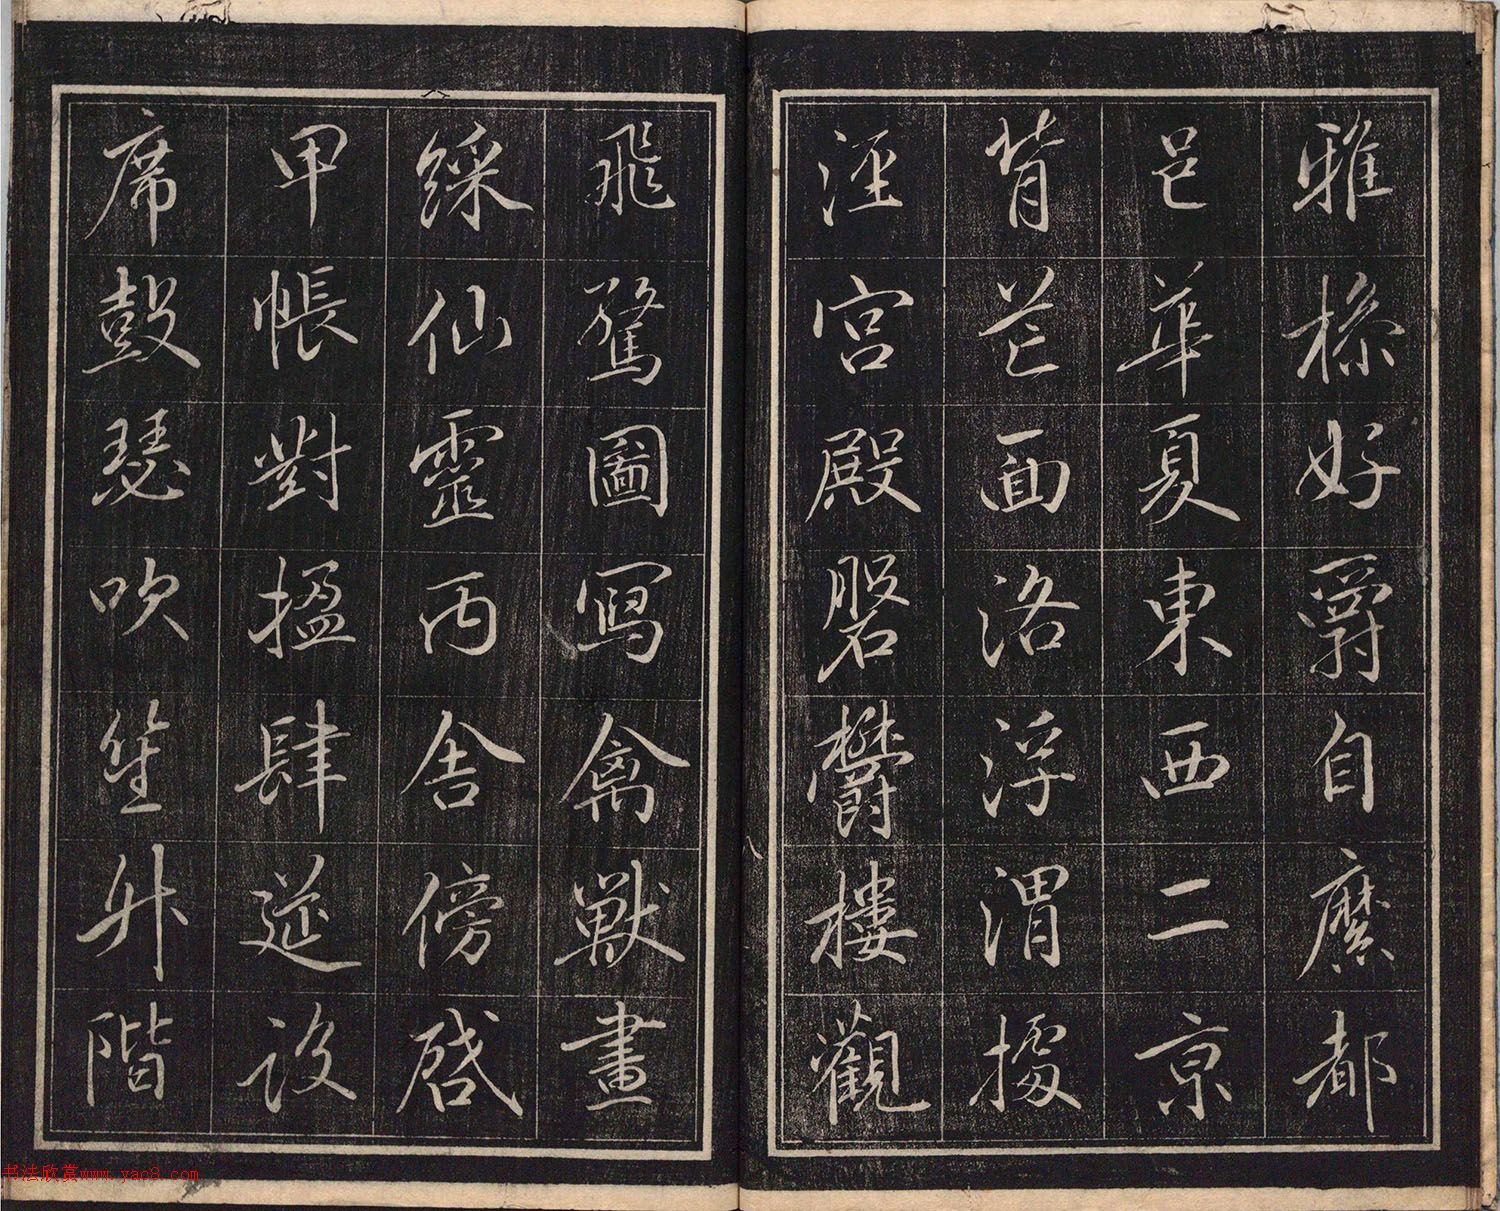 雅操好爵自縻都
邑華夏東西二京
背芒面洛浮渭據
涇宮殿磐欝樓觀
飛驚圖寫禽獸畫
綵仙靈丙舍傍啓
甲帳對楹肆筵設
席鼓瑟吹笙升階
书法欣赏www.yac8.com